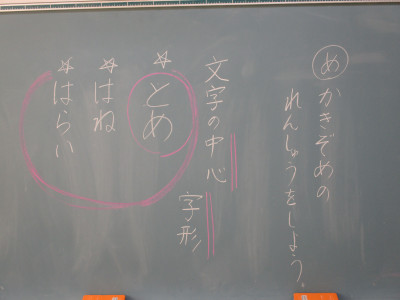 め かきぞめの
れんしゅうをしよう。
文字の中心
字形
☆とめ
☆はね
☆はらい